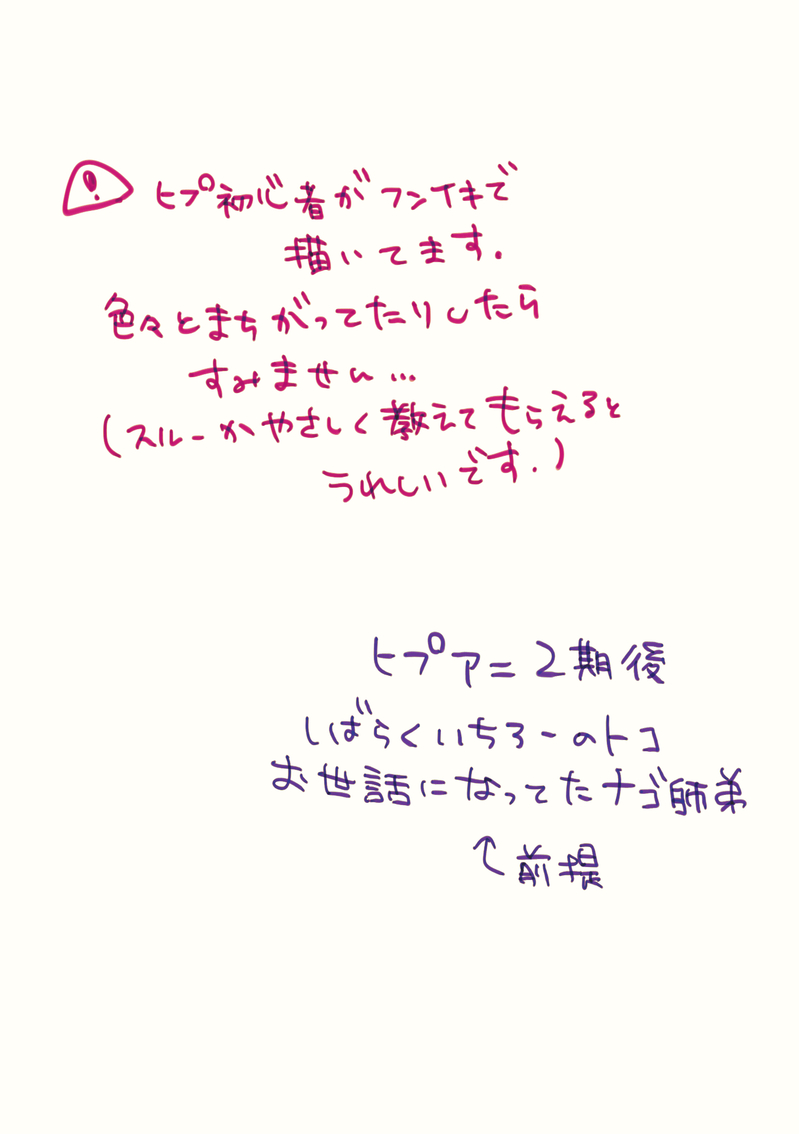 ヒプ初心者がフンイキで
描いてます.
色々とまちがってたりしたら
すみません…
(スルーかやさしく教えてもらえると
うれしいです.)
ヒプアニ2期後
しばらくいちろーのトコ
お世話になってたナゴ師弟
↑前提